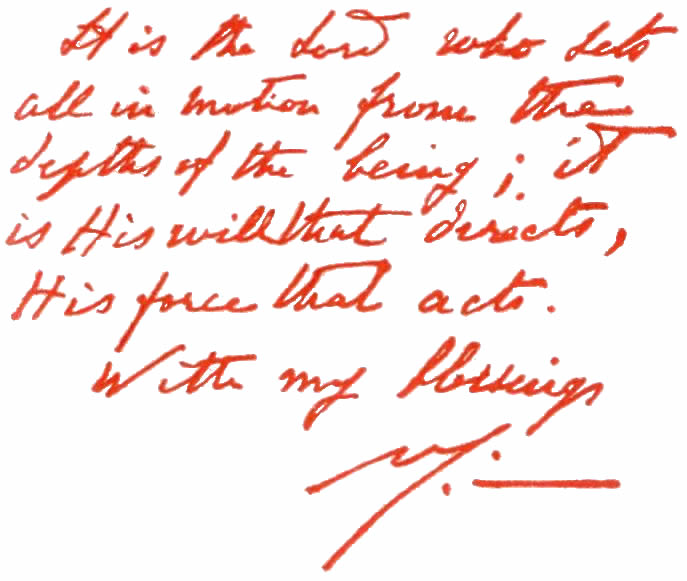 It is the Lord who sets
all in motion from the
depths of the being; it
is His will that directs,
His force that acts.
With my blessings